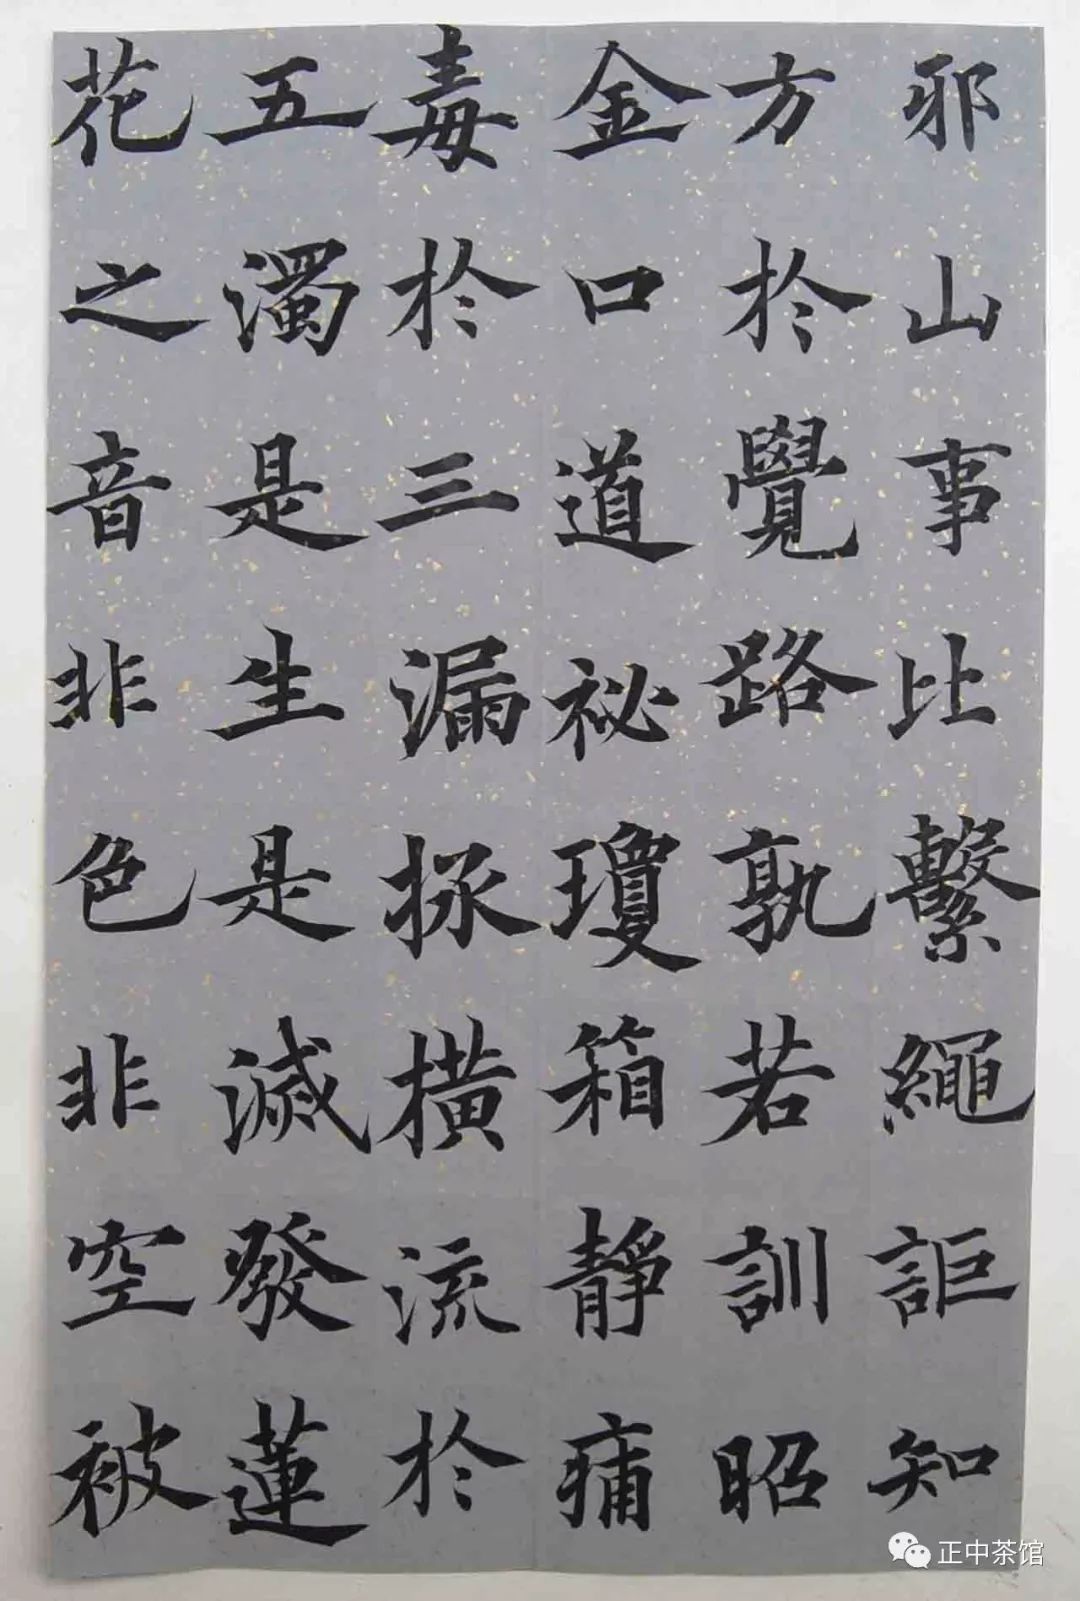 邪山事比繫繩詎知
方於覺路孰若訓昭
金口道祕瓊箱靜痡
毒於三漏拯橫流於
五濁是生是滅發蓮
花之音非色非空被
正中茶馆